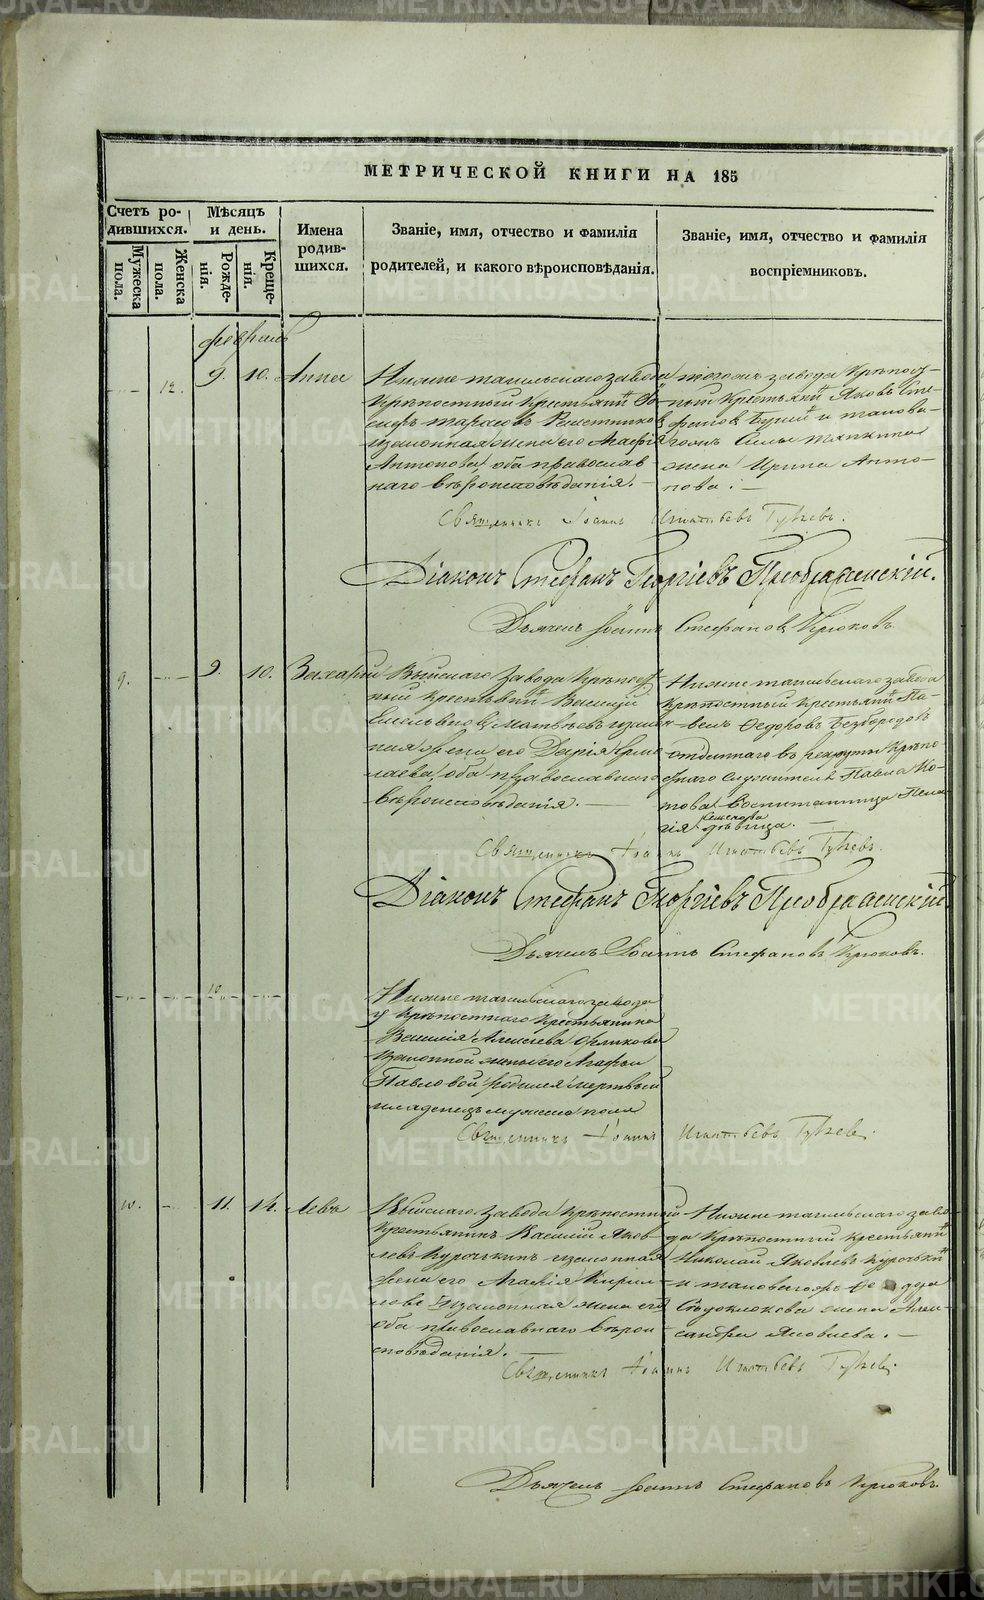 МЕТРИЧЕСКОЙ КНИГИ НА 185
Счетъ ро-
дившихся.
Мѣсяцъ
и день.
Имена
родив-
шихся.
Званіе, имя, отчество и фамилія
родителей, и какого вѣроисповѣданія.
Званіе, имя, отчество и фамилія
воспріемниковъ.
Мужеска
пола.
Женска
пола.
Рожде-
нія.
Креще-
нія.
февраль
12. 9. 10. Анна
Нижне тагильскаго завода
крѣпостный крестьянинъ
сифъ Тарасовъ
изаконная жена его Агафія
Антонова оба православ
наго вѣроисповѣданія. —
тогожъ завода крѣпост-
ный крестьянинъ Яковъ Сте-
фановъ и таково-
гожъ Силы
жена Ирина Анто-
нова. —
Священникъ Іоаннъ Игнатьевъ
Діаконъ Стефанъ Георгіевъ Преображенскій.
Дьячекъ Іоаннъ Стефановъ Крюковъ.
9. 9. 10. Захарий
Выйскаго завода крѣпост
ный крестьянинъ Василій
Емельяновъ Матвѣевъ изакон
ная жена его Дарія Ермо
лаева оба православнаго
вѣроисповѣданія. —
Нижне тагильскаго завода
крѣпостный крестьянинъ Па-
велъ Федоровъ Безбородовъ
отданнаго въ рекруты крѣпо
стнаго служителя Павла Ко-
това воспитанница Пела
гія дѣвица. —
Священникъ Іоаннъ Игнатьевъ
Діаконъ Стефанъ Георгіевъ Преображенскій
Дьячекъ Іоаннъ Стефановъ Крюковъ.
10
Нижне тагильскаго завода
у крѣпостнаго крестьянина
Василія Алексѣева
изаконной жены его Агафьи
Павловой родился мертвый
младенецъ мужеска пола
Священникъ Іоаннъ Игнатьевъ
10. 11. 14. Левъ
Выйскаго завода крѣпостный
крестьянинъ Василій Яков
левъ Курочкинъ изаконная
жена его Агафія Кирил-
лова изаконная жена его
оба православнаго вѣрои
сповѣданія.
Нижне тагильскаго заво-
да крѣпостный крестьянинъ
Николай Яковлевъ Курочкинъ
и таковагожъ
жена Алек-
сандра Яковлева. —
Священникъ Іоаннъ Игнатьевъ
Дьячекъ Іоаннъ Стефановъ Крюковъ.
METRIKI.GASO-URAL.RU